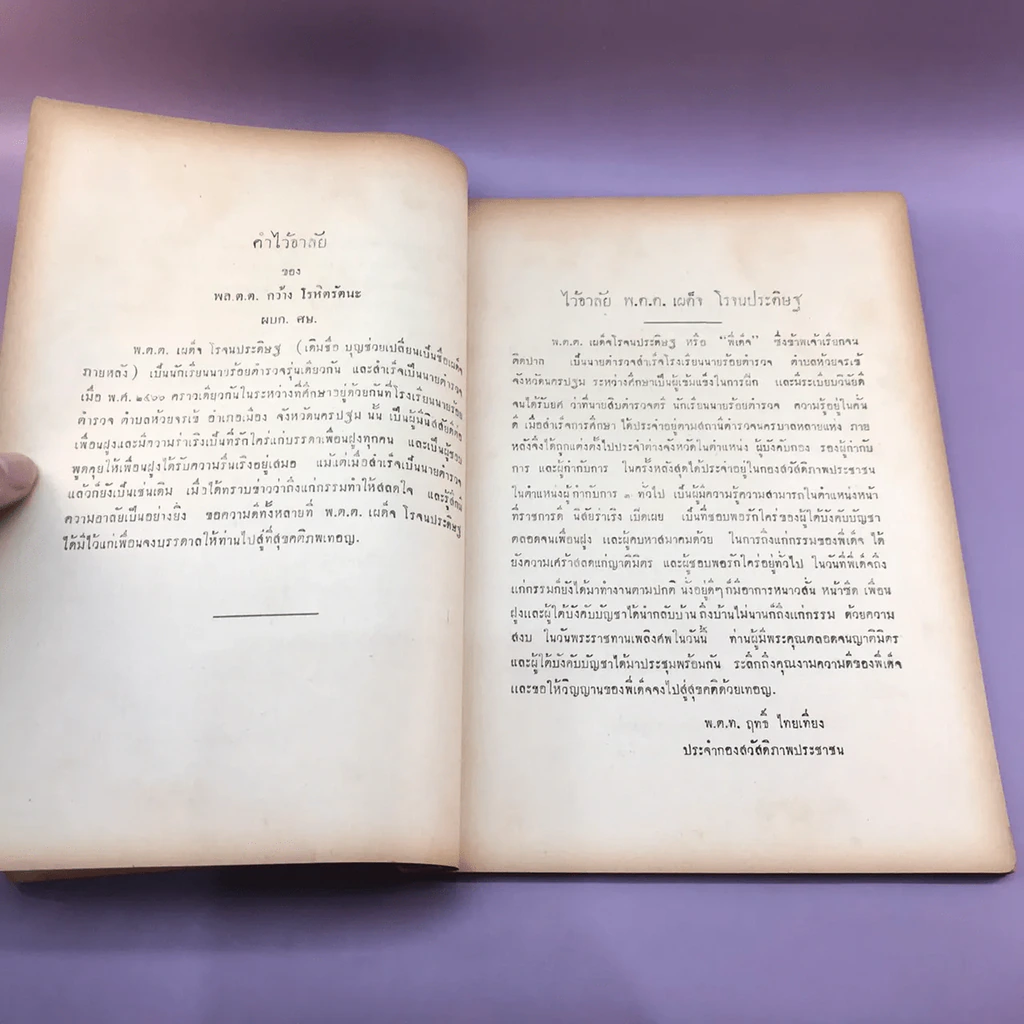 คำไว้อาลัย
ของ
พล.ต.ต. กว้าง โรหิตรัตนะ
ผบก. ศษ.
พ.ต.ต. เผด็จ โรจนประดิษฐ (เดิมชื่อ บุญช่วยเปลี่ยนเป็นชื่อเผด็จ
ภายหลัง) เป็นนักเรียนนายร้อยตำรวจรุ่นเดียวกัน และสำเร็จเป็นนายตำรวจ
เมื่อ พ.ศ. ๒๔๐๐ คราวเดียวกันในระหว่างที่ศึกษาอยู่ด้วยกันที่โรงเรียนนายร้อย
ตำรวจ ตำบลห้วยจรเข้ อำเภอเมือง จังหวัดนครปฐม นั้น เป็นผู้มีนิสสัยดีต่อ
เพื่อนฝูงและมีความร่าเริงเป็นที่รักใคร่แก่บรรดาเพื่อนฝูงทุกคน และเป็นผู้ชอบ
พูดคุยให้เพื่อนฝูงได้รับความรื่นเริงอยู่เสมอ แม้แต่เมื่อสำเร็จเป็นนายตำรวจ
แล้วก็ยังเป็นเช่นเดิม เมื่อได้ทราบข่าวว่าถึงแก่กรรมทำให้สลดใจ และรู้สึกมี
ความอาลัยเป็นอย่างยิ่ง ขอความดีทั้งหลายที่ พ.ต.ต. เผด็จ โรจนประดิษฐ
ได้มีไว้แก่เพื่อนจงบรรดาลให้ท่านไปสู่ที่สุขคติภพเทอญ.
ไว้อาลัย พ.ต.ต. เผด็จ โรจนประดิษฐ
พ.ต.ต. เผด็จ โรจนประดิษฐ หรือ "พี่เด็จ" ซึ่งข้าพเจ้าเรียกจน
ติดปาก เป็นนายตำรวจสำเร็จโรงเรียนนายร้อยตำรวจ ตำบลห้วยจรเข้
จังหวัดนครปฐม ระหว่างศึกษาเป็นผู้เข้มแข็งในการฝึก และมีระเบียบวินัยดี
จนได้รับยศ ว่าที่นายสิบตำรวจตรี นักเรียนนายร้อยตำรวจ ความรู้อยู่ในคั่น
ดี เมื่อสำเร็จการศึกษา ได้ประจำอยู่ตามสถานีตำรวจนครบาลหลายแห่ง ภาย
หลังจึงได้ถูกแต่งตั้งไปประจำต่างจังหวัดในตำแหน่ง ผู้บังคับกอง รองผู้กำกับ
การ และผู้กำกับการ ในครั้งหลังสุดได้ประจำอยู่ในกองสวัสดิภาพประชาชน
ในตำแหน่งผู้กำกับการ ๓ ทั่วไป เป็นผู้มีความรู้ความสามารถในตำแหน่งหน้า
ที่ราชการดี นิสัยร่าเริง เปิดเผย เป็นที่ชอบพอรักใคร่ของผู้ใต้บังคับบัญชา
ตลอดจนเพื่อนฝูง และผู้คบหาสมาคมด้วย ในการถึงแก่กรรมของพี่เด็จ ได้
ยังความเศร้าสลดแก่ญาติมิตร และผู้ชอบพอรักใคร่อยู่ทั่วไป ในวันที่พี่เด็จถึง
แก่กรรมก็ยังได้มาทำงานตามปกติ นั่งอยู่ดีๆ ก็มีอาการหนาวสั่น หน้าซีด เพื่อน
ฝูงและผู้ใต้บังคับบัญชาได้นำกลับบ้าน ถึงบ้านไม่นานก็ถึงแก่กรรม ด้วยความ
สงบ ในวันพระราชทานเพลิงศพในวันนี้ ท่านผู้มีพระคุณตลอดจนญาติมิตร
และผู้ใต้บังคับบัญชาได้มาประชุมพร้อมกัน ระลึกถึงคุณงามความดีของพี่เด็จ
และขอให้วิญญานของพี่เด็จจงไปสู่สุขคติด้วยเทอญ.
พ.ต.ท. ฤทธิ์ ไทยเที่ยง
ประจำกองสวัสดิภาพประชาชน